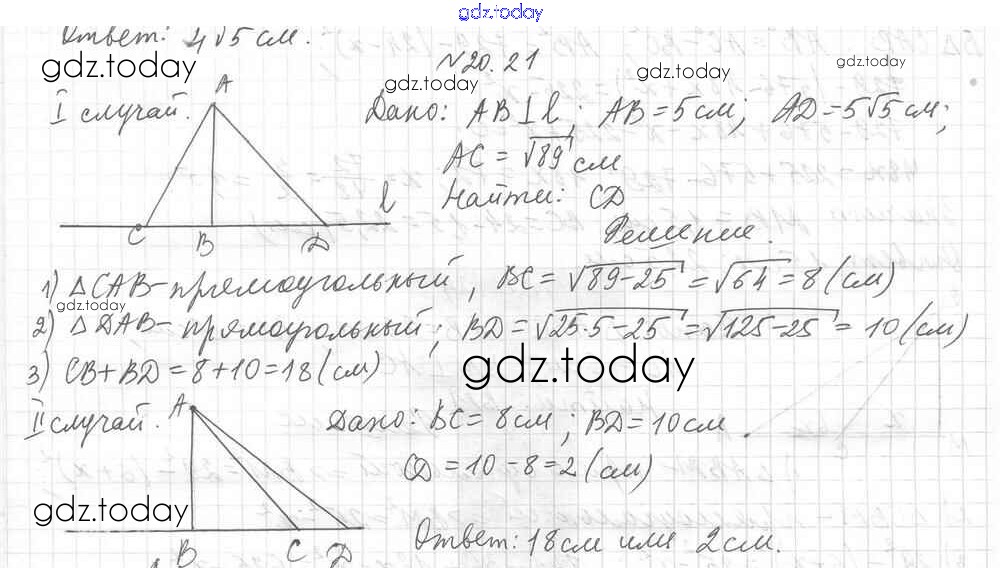 gdz.today
Ответ: 4√5 см.
№20.21
gdz.today
gdz.today
gdz.today
gdz.today
I случай.
A
C B D l
Дано: AB⊥l; AB=5см; AD=5√5см;
AC=√89 см
Найти: CD
Решение.
1) △CAB-прямоугольный, BC=√89-25=√64=8(см)
gdz.today
2) △DAB-прямоугольный; BD=√25·5-25=√125-25=10(см)
3) CB+BD=8+10=18(см)
gdz.today
II случай.
A
B C D
Дано: BC=8см; BD=10см.
CD=10-8=2(см)
gdz.today
Ответ: 18см или 2см.